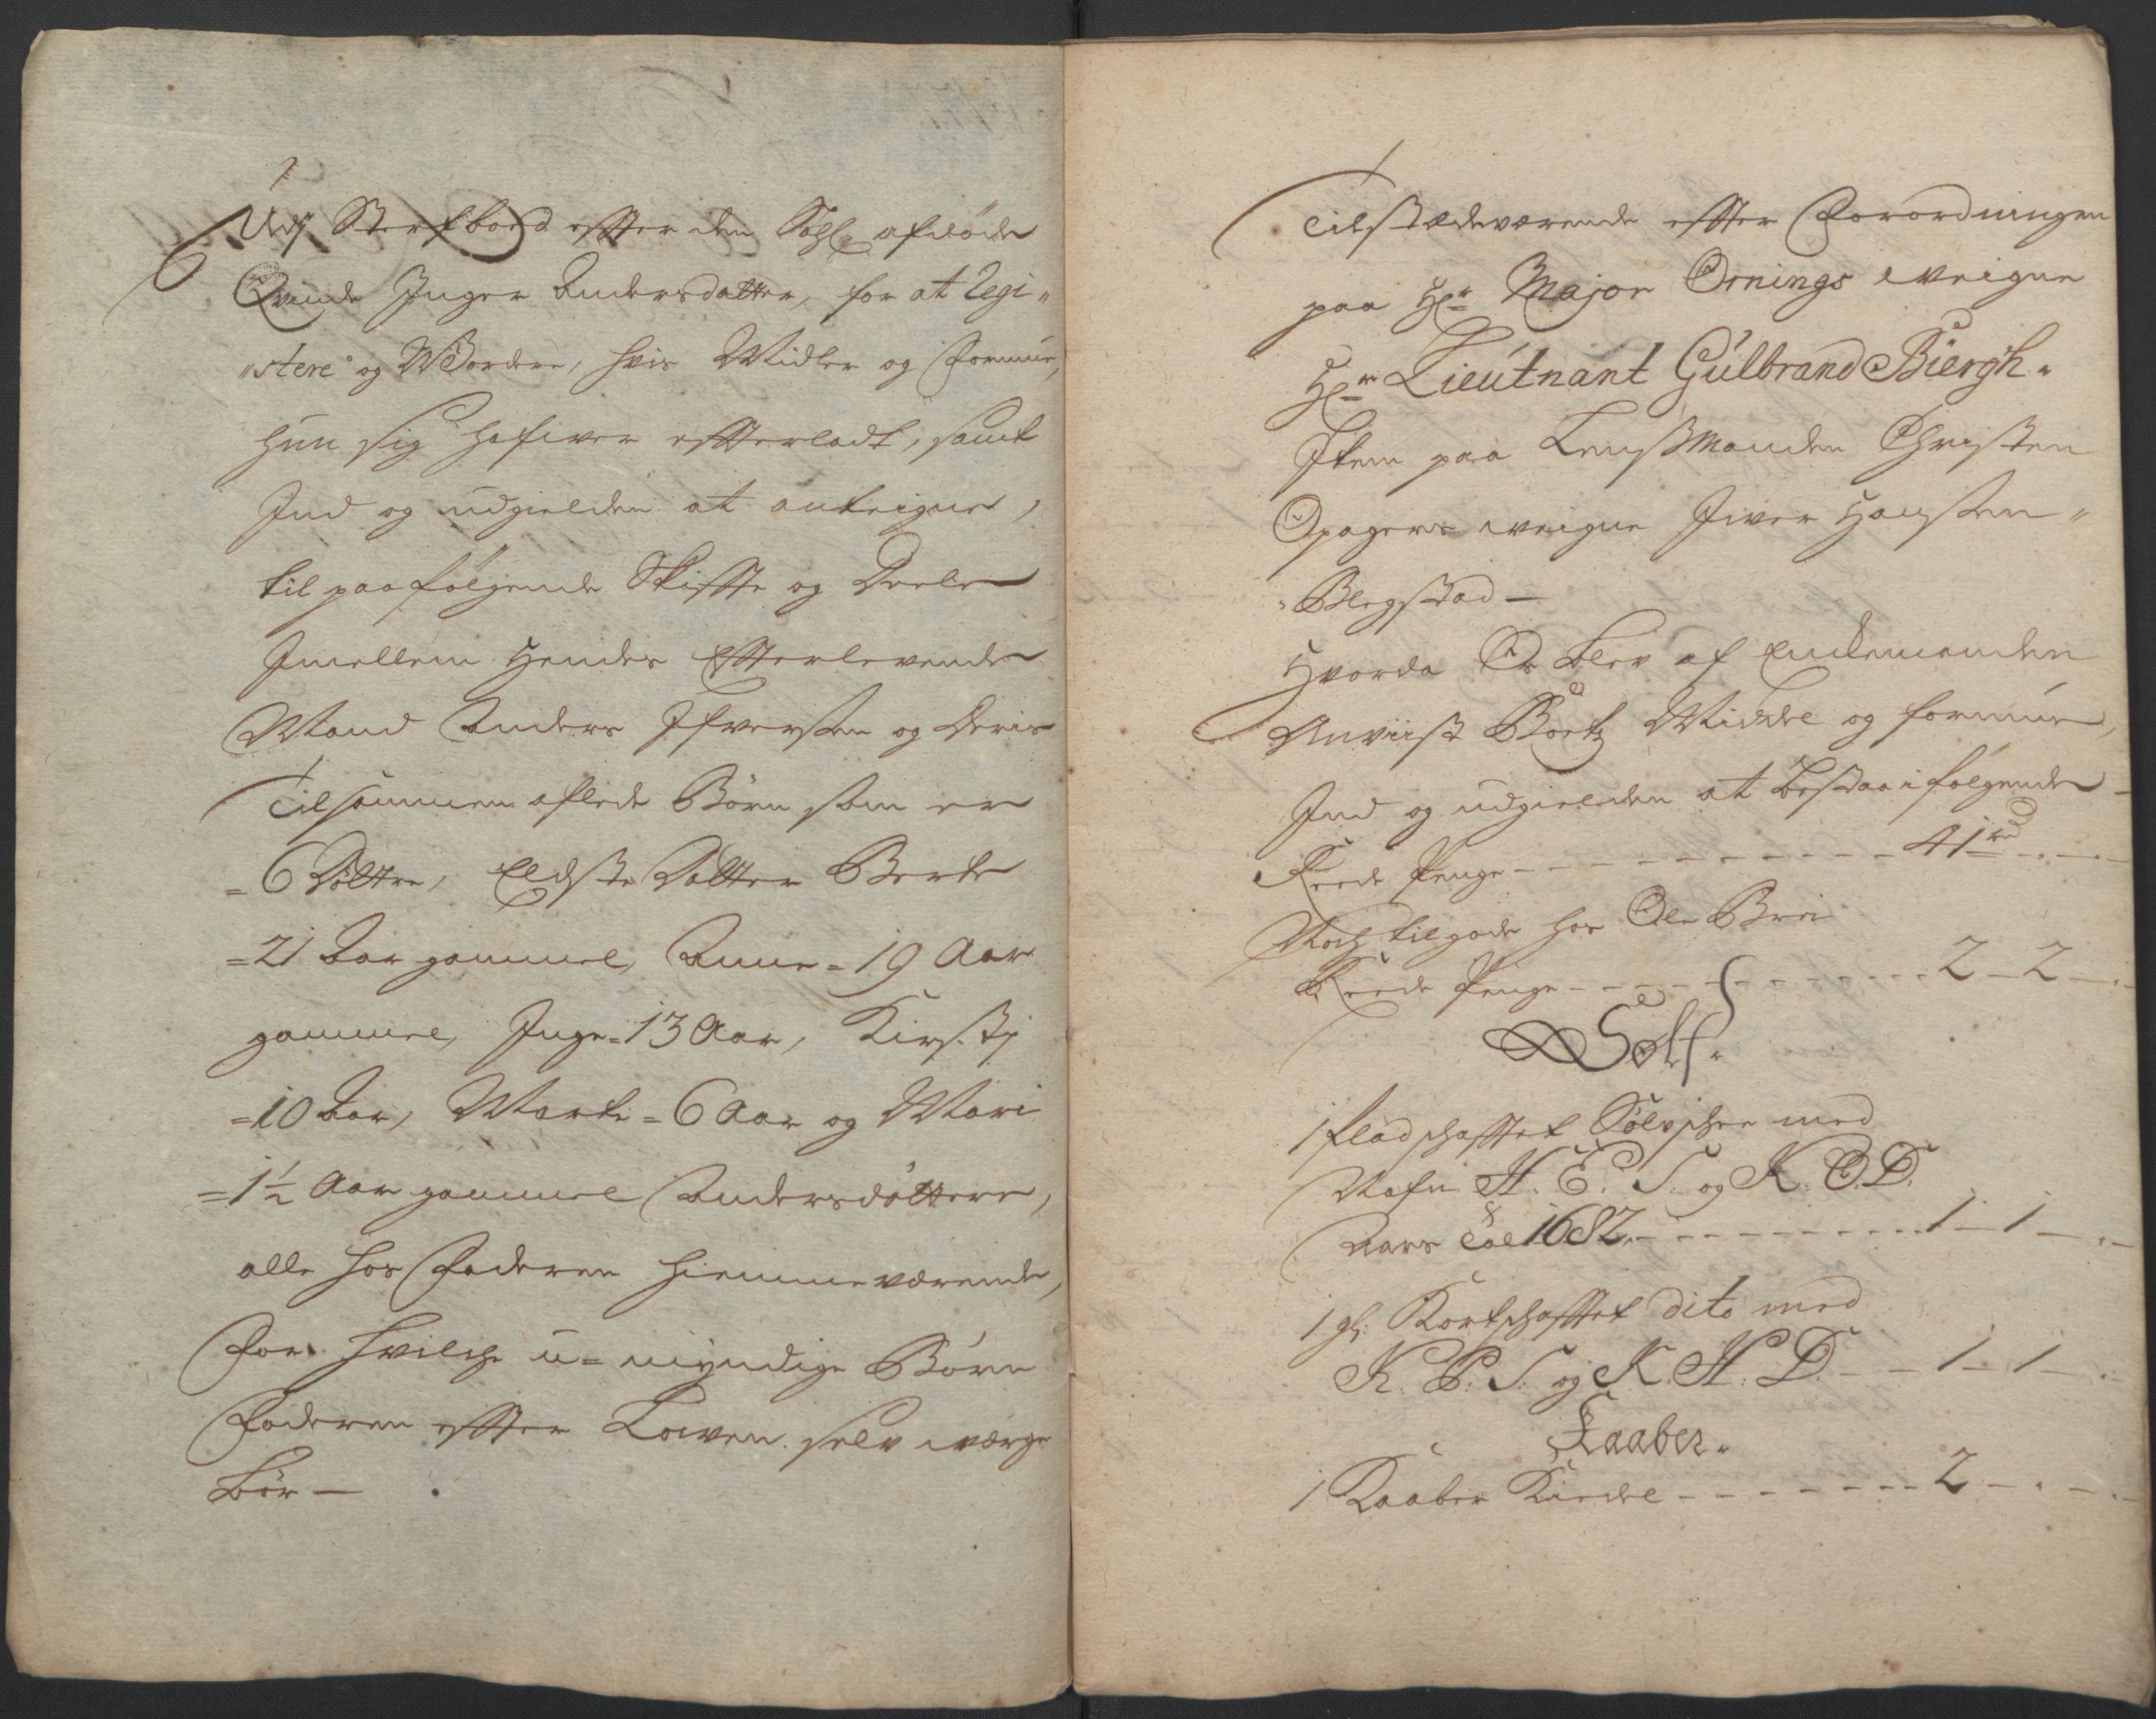 Udj Sterfboed effter den Sahl: afdøde
Qvinde Inger Andersdatter, for at Regi„
„stere og Wordere, hvis Midler og Formue,
hun sig hafwer effterladt, samt
Ind og udgielden at anteigne,
til paafølgende Skiffte og Deele
Imellem Hendes Efterlevende
Mand Anders Ifversen og Deris
Tilsammen aflede Børn som er
=6 Døttre, Eldste Datter Berte
=21 Aar gammel, Anne=19 Aar
gammel, Inge=13 Aar, Kirstj
=10 Aar, Marte=6 Aar og Mari
=1½ Aar gammel Andersdøttere,
alle hos Faderen hiemmeværende,
For hvilche u=myndige Børn
Faderen effter Lowen selv værge
bør —
Tilstædeværende effter Forordningen
paa Hr Major Ornings weigne
Hr Lieutnant Gulbrand Biergh.
Item paa Lensmanden Christen
Opagers weigne Iver Hansen
Blegstad —
Hvorda Os blev af Enkemanden
Anviist Boets Middel og formue,
Ind og udgielden at bestaa i følgende
Reede Penge - - - 41 rd - -
Noch tilgode hos Ole Brei
Reede Penge - - - 2 - 2 -
Sølf.
1 flad schafftet Sølvschee med
Nafn H. E. S. og K. O. D.
Aars tal 1682 - - - 1 - 1 -
1 gl: Kortschafftet dito med
K. P. S. og K. H. D. - 1 - 1 -
Kaaber.
1 Kaaber Kiedel - - - 2 - -